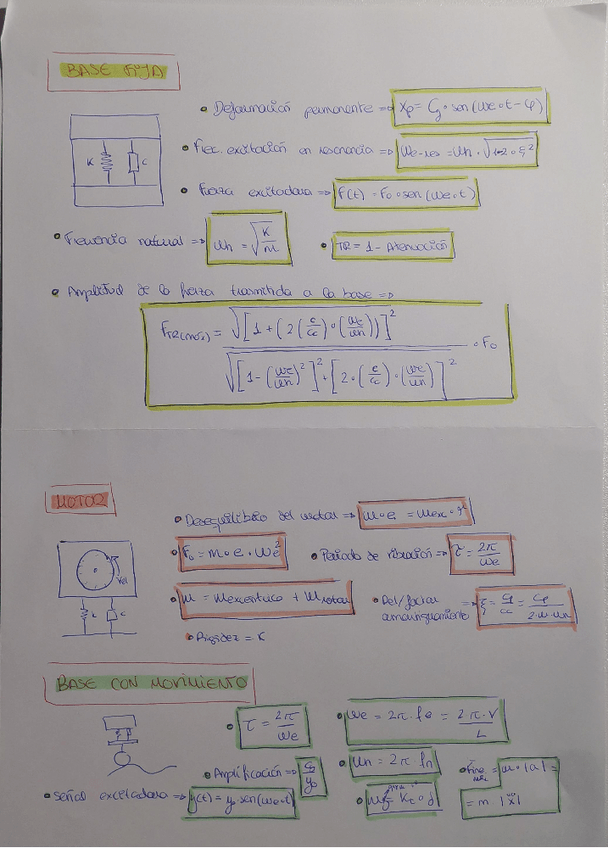 BASE FIJA
• Deformación permanente => Xp = Cg · sen(ωe·t - φ)
K C
• Frec. excitación en resonancia => ωe-res = ωn · √(1-2·ξ²)
• Fuerza excitadora => F(t) = F₀·sen(ωe·t)
• Frecuencia natural => ωn = √(K/m)
• TR = 1 - Atenuación
• Amplitud de la fuerza trasmitida a la base =>
F_TR(máx) = √[1 + (2(c/cc)·(ωe/ωn))]² / √([1-(ωe/ωn)²]² + [2·(c/cc)·(ωe/ωn)]²) · F₀
MOTOR
• Desequilibrio del motor => m·e = mexc·r
• F₀ = m·e·ωe²
• Periodo de vibración => τ = 2π/ωe
K C
• m = mexcéntrica + mmotor
• Rel/factor amortiguamiento => ξ = c/cc = c/(2·m·ωn)
• Rigidez = K
BASE CON MOVIMIENTO
• τ = 2π/ωe
• ωe = 2π·fe = 2π·V/L
• Amplificación => Cg/y₀
• ωn = 2π fn
= m·|a| =
= m·|ẍ|
• Señal excitadora => y(t) = y₀ sen(ωe·t)